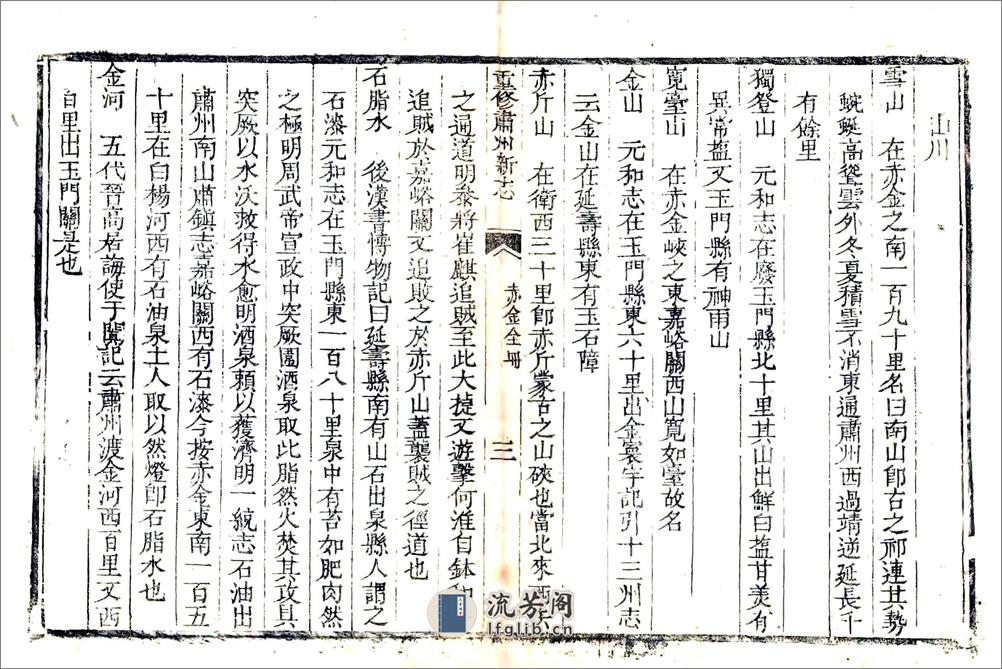 山川
雪山　在赤金之南一百九十里名曰南山卽古之祁連其勢
蜿蜒高聳雲外冬夏積雪不消東通肅州西過靖逆延長千
有餘里
獨登山　元和志在廢玉門縣北十里其山出鮮白塩甘美有
異常塩又玉門縣有神雨山
寬臺山　在赤金峽之東嘉峪關西山寬如臺故名
金山　元和志在玉門縣東六十里出金寰宇記引十三州志
云金山在延壽縣東有玉石障
赤斤山　在衛西三十里卽赤斤蒙古之山硤也當北來
重修肅州新志
赤金全冊
三
之通道明叅將崔麒追賊至此大㨗又遊擊何淮自鉢
追賊於嘉峪關又追敗之於赤斤山蓋襲賊之徑道也
石脂水　後漢書博物記曰延壽縣南有山石出泉縣人謂之
石漆元和志在玉門縣東一百八十里泉中有苔如肥肉然
之極明周武帝宣政中突厥圍酒泉取此脂然火焚其攻具
突厥以水沃救得水愈明酒泉賴以獲濟明一統志石油出
肅州南山肅鎮志嘉峪關西有石漆今按赤金東南一百五
十里在白楊河西有石油泉土人取以然燈卽石脂水也
金河　五代晉高居誨使于闐記云肅州渡金河西百里又西
百里出玉門關是也
流芳阁
lfglib.cn